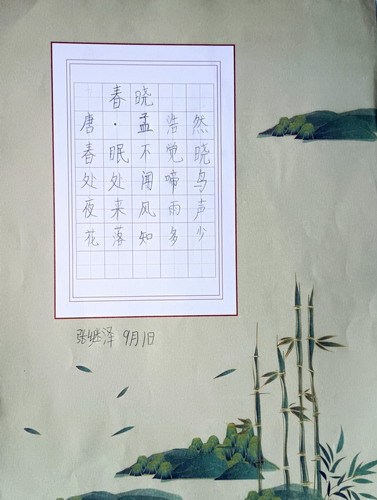 春晓
唐·孟浩然
春眠不觉晓
处处闻啼鸟
夜来风雨声
花落知多少
张继泽 9月1日